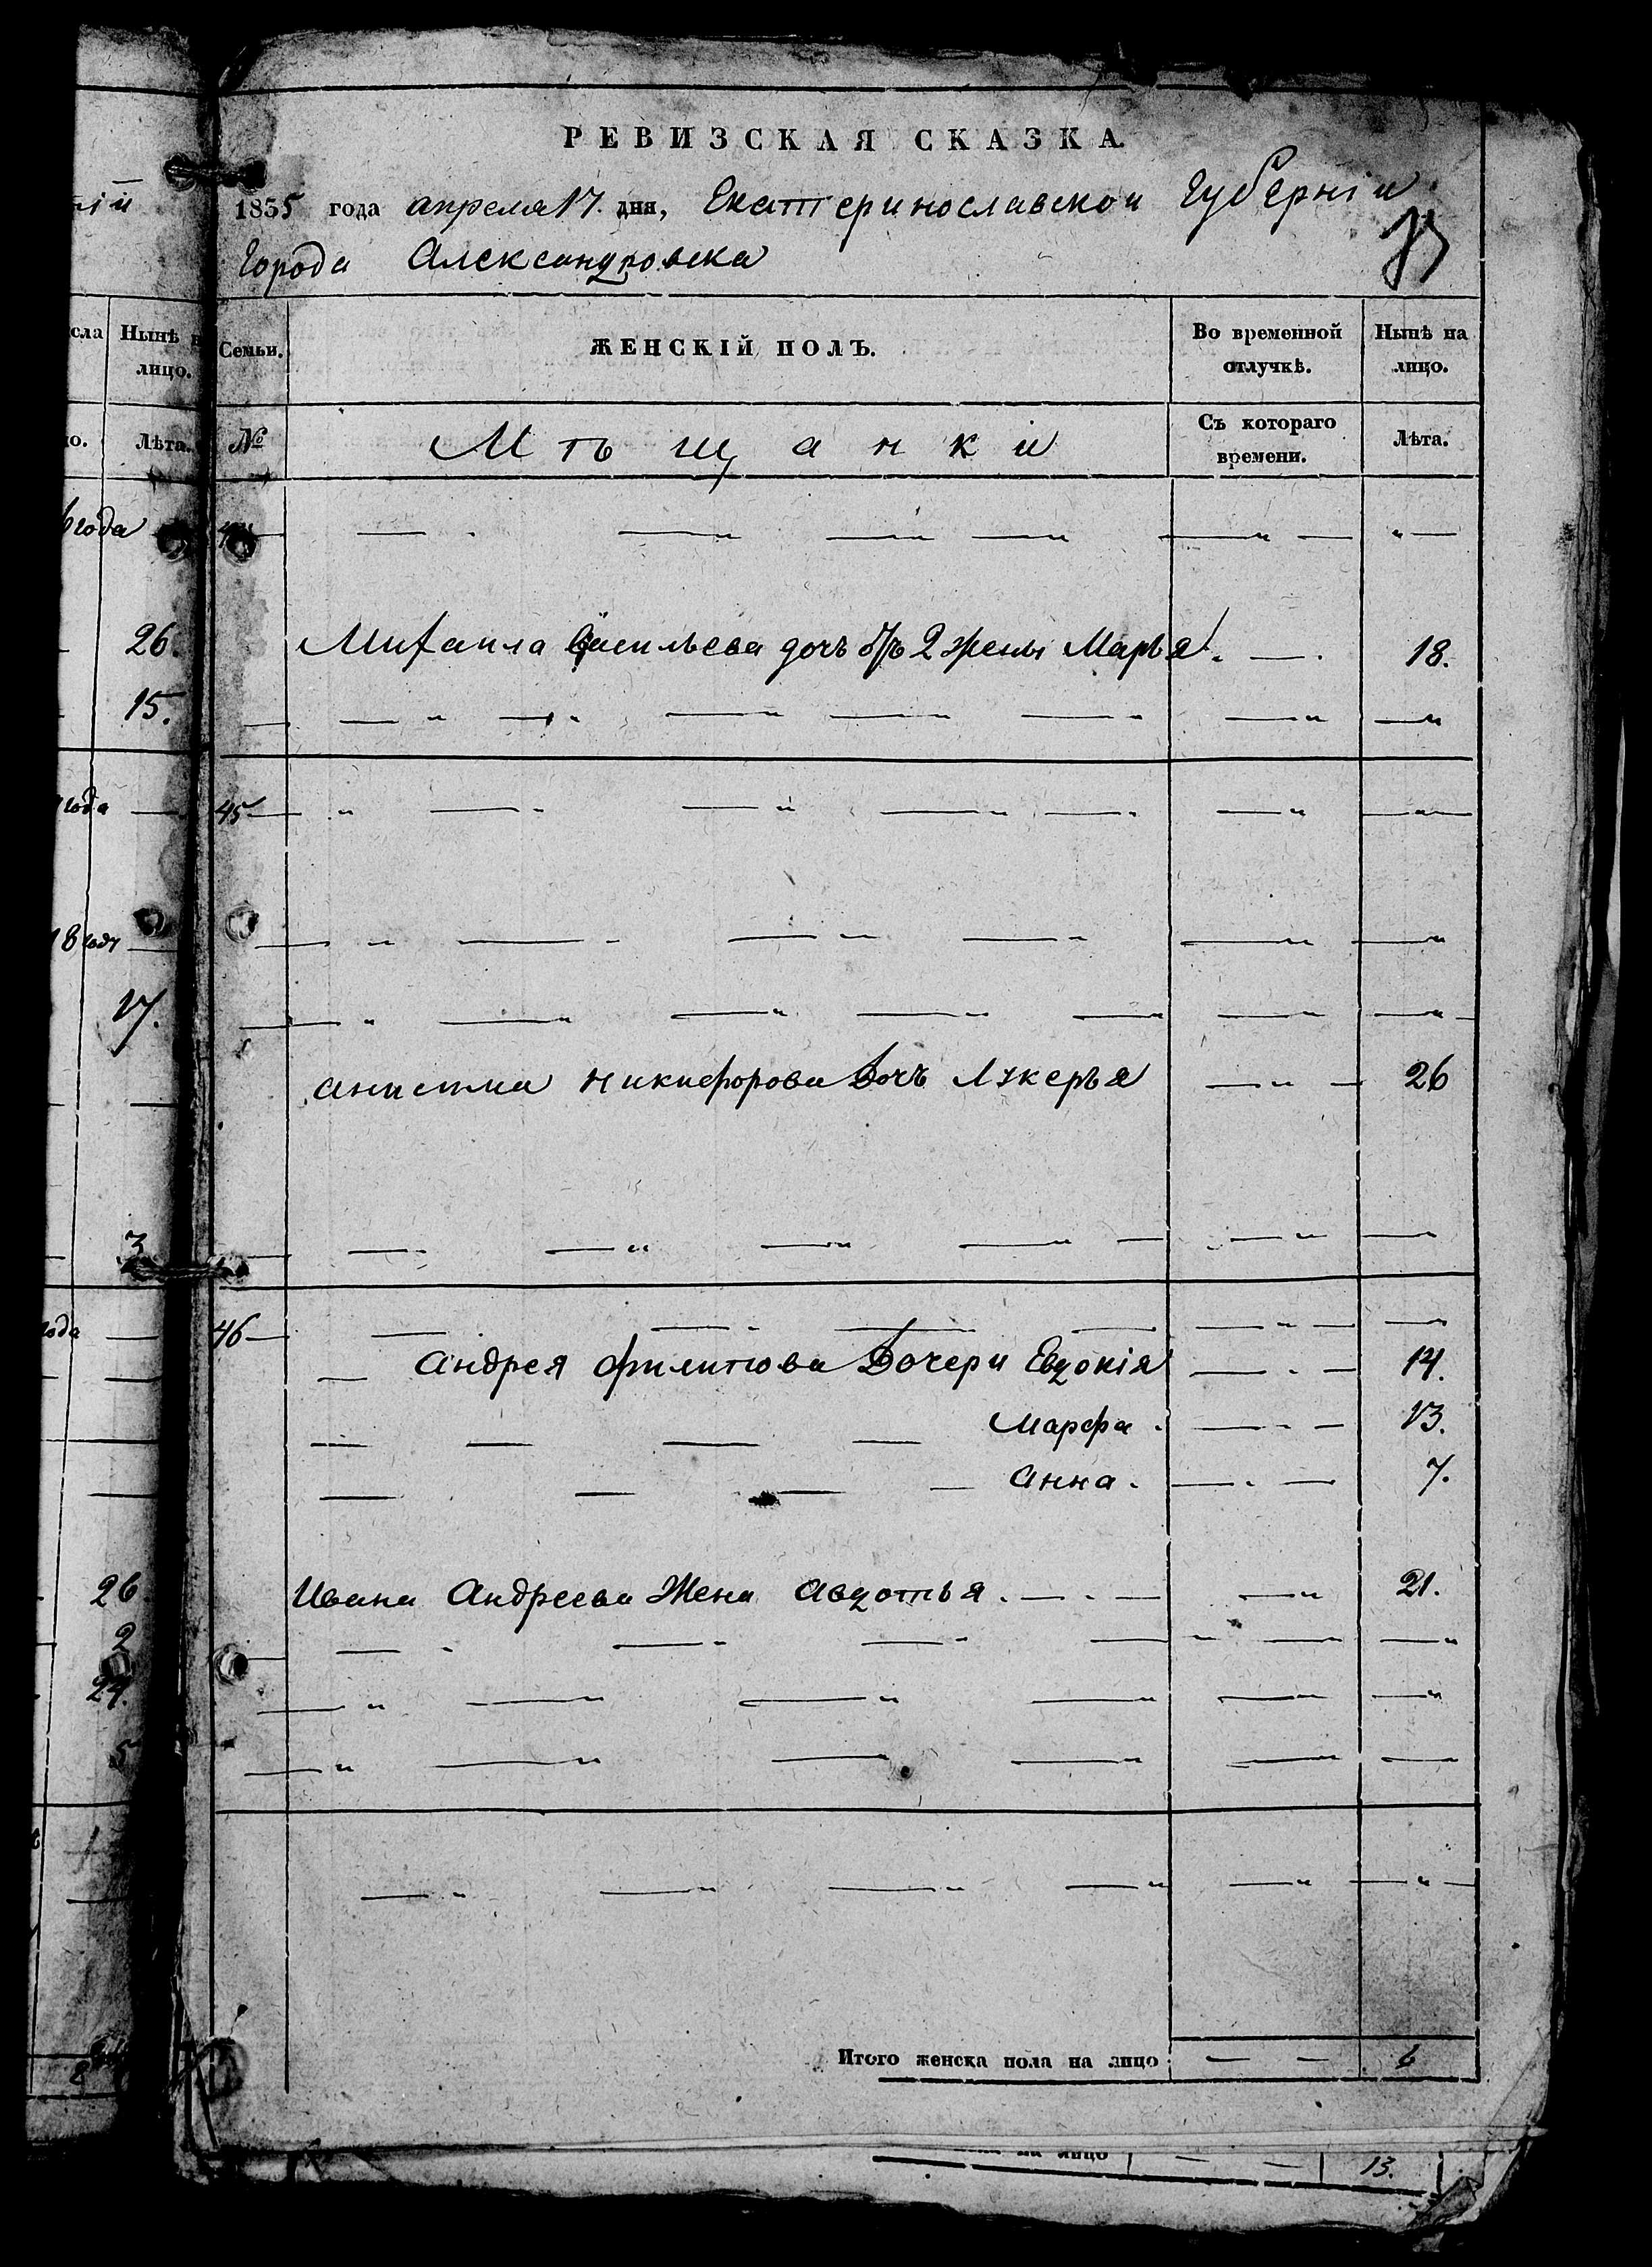 РЕВИЗСКАЯ СКАЗКА.
1835 года апреля 17. дня, Екатеринославской Губерніи
Города Александровска
Семьи. ЖЕНСКІЙ ПОЛЪ. Во временной отлучкѣ. Нынѣ на лицо.
№ Мѣщанки Съ котораго времени. Лѣта.
Михаила Васильева дочь отъ 2 жены Марья. 18.
45
Анисима Никифорова Дочь Лукерья 26
46
Андрея Филипова Дочери Евдокія 14.
Марфа. 13.
Анна. 7.
Ивана Андреева Жена Авдотья. 21.
Итого женска пола на лицо 6
на лицо 13.
сла Нынѣ
лицо.
Лѣта.
года
26.
15.
года
18 году
17.
3
года
26
2
24.
5